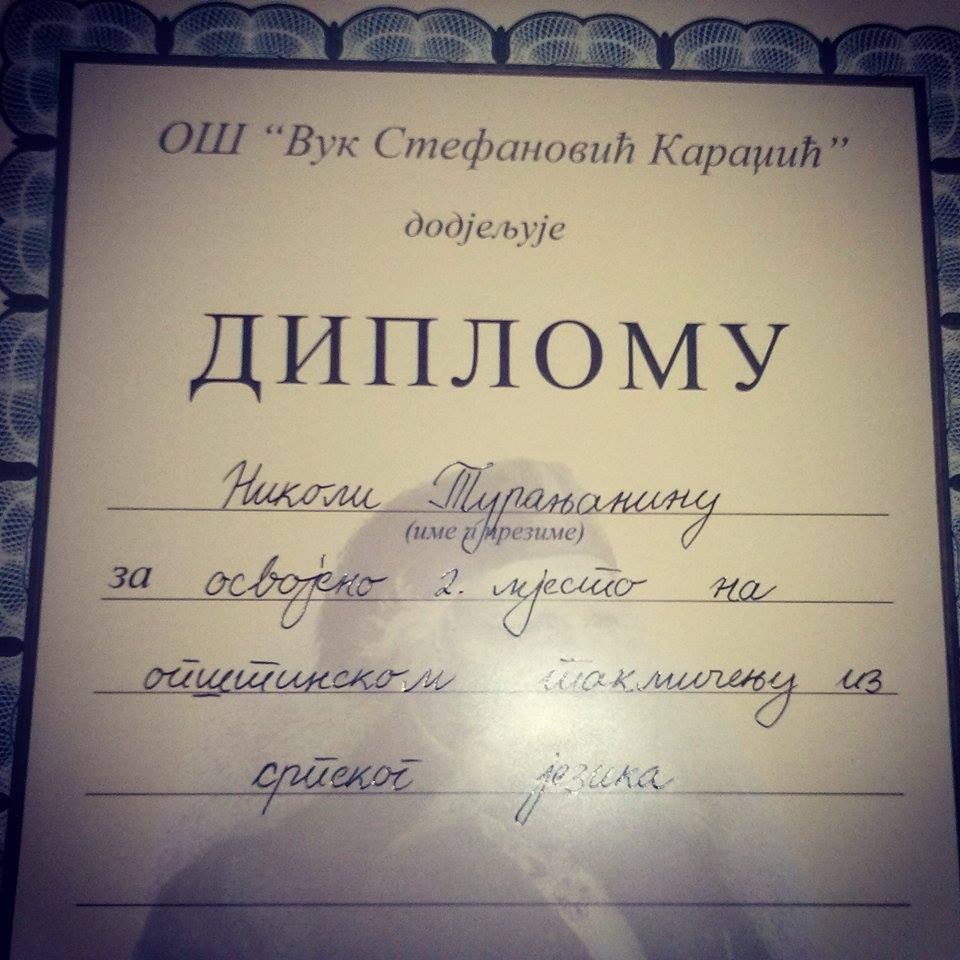 ОШ “Вук Стефановић Караџић”
додјељује
ДИПЛОМУ
Николи Турањанину
(име и презиме)
за освојено 2. мјесто на
општинском такмичењу из
српског језика